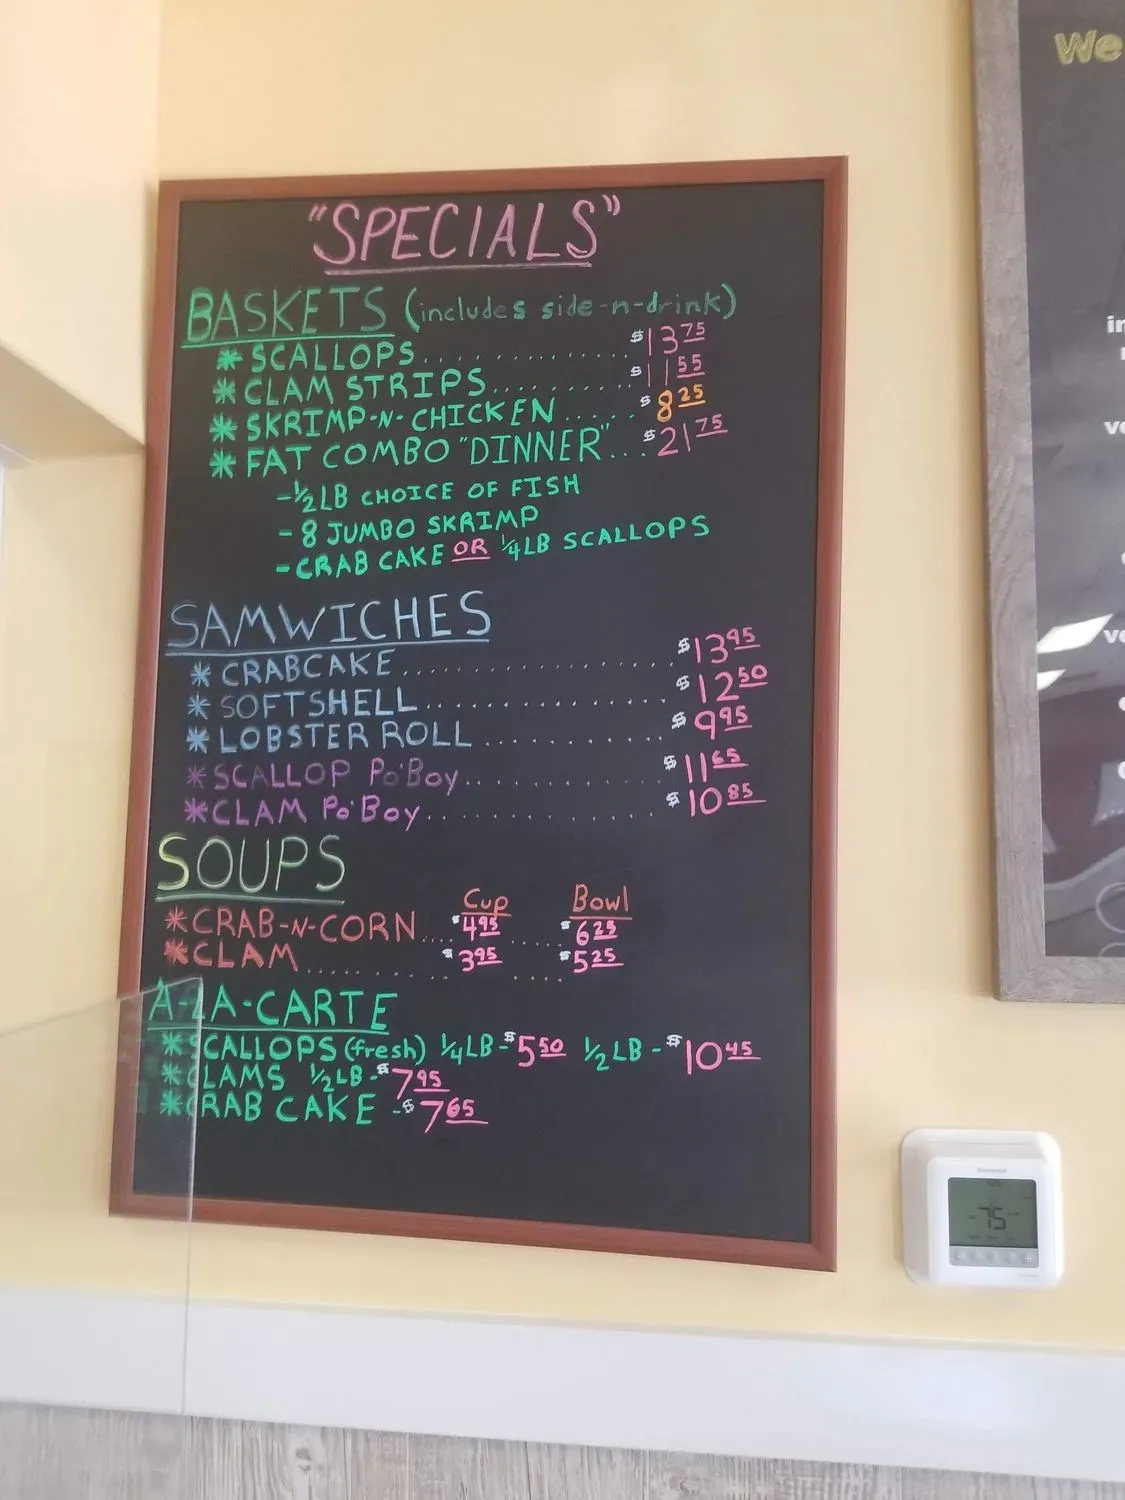 "SPECIALS"
BASKETS (includes side-n-drink)
* SCALLOPS............... $13 75
* CLAM STRIPS.......... $11 55
* SKRIMP-N-CHICKEN...... $8 25
* FAT COMBO "DINNER"... $21 75
-1/2 LB CHOICE OF FISH
- 8 JUMBO SKRIMP
- CRAB CAKE OR 1/4 LB SCALLOPS
SAMWICHES
* CRABCAKE.................... $13 95
* SOFTSHELL................... $12 50
* LOBSTER ROLL............ $9 95
* SCALLOP Po'Boy............ $11 65
* CLAM Po'Boy................ $10 85
SOUPS
Cup Bowl
* CRAB-N-CORN.... $4 95 .... $6 25
* CLAM............ $3 95 .... $5 25
A-LA-CARTE
* SCALLOPS (fresh) 1/4 LB - $5 50 1/2 LB - $10 45
* CLAMS 1/2 LB - $7 95
* CRAB CAKE - $7 65
We
Honeywell
75